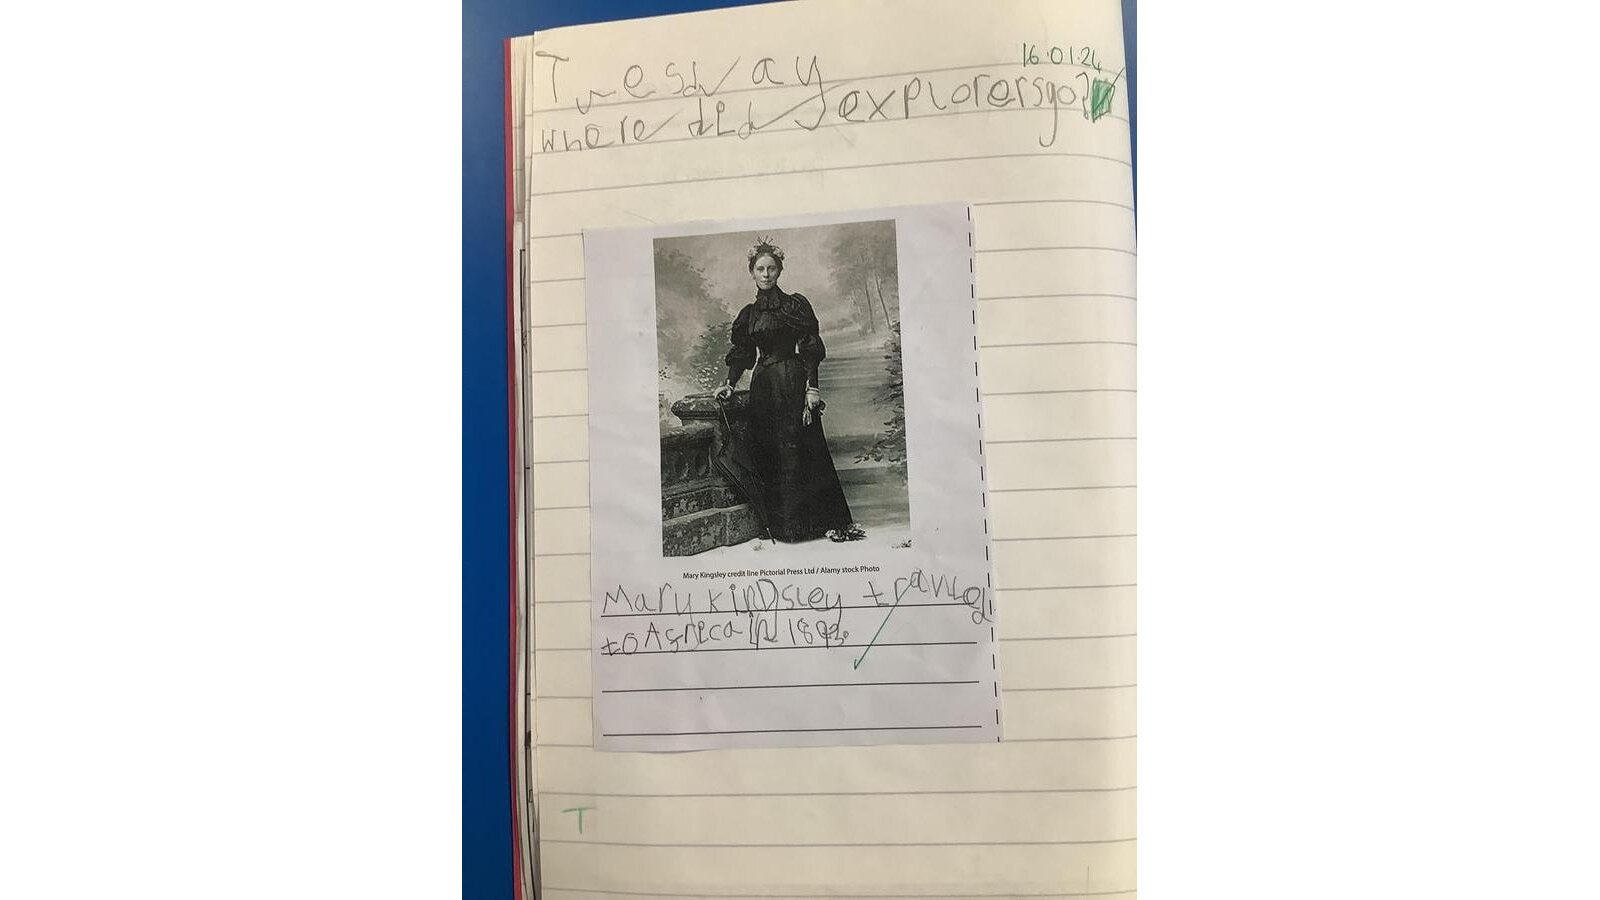 Tuesday 16.01.24
where did explorers go?
Mary Kingsley credit line Pictorial Press Ltd / Alamy stock Photo
Mary Kindsley travled
to Afreca in 1893.
T